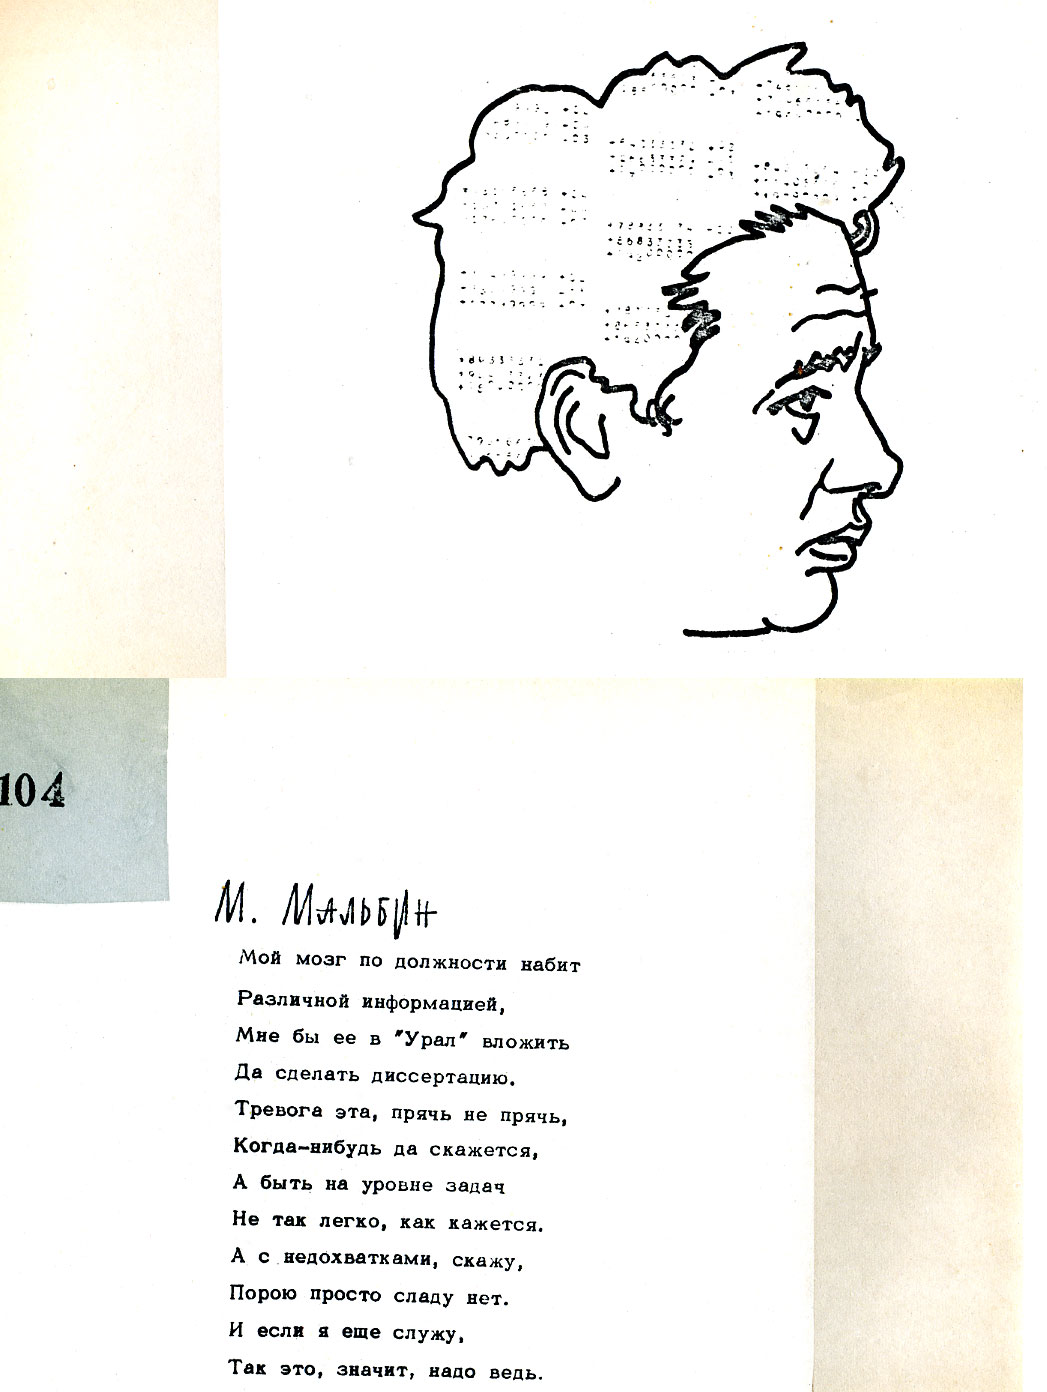 104
М. Мальбин
Мой мозг по должности набит
Различной информацией,
Мне бы ее в "Урал" вложить
Да сделать диссертацию.
Тревога эта, прячь не прячь,
Когда-нибудь да скажется,
А быть на уровне задач
Не так легко, как кажется.
А с недохватками, скажу,
Порою просто сладу нет.
И если я еще служу,
Так это, значит, надо ведь.